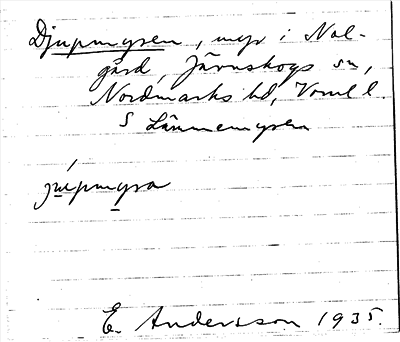 Djupmysen, myr i Nol-
gård, Järnskogs sn,
Nordmarks hd, Värml l.
S Lännemysen
júpmysa
E. Andersson 1935.